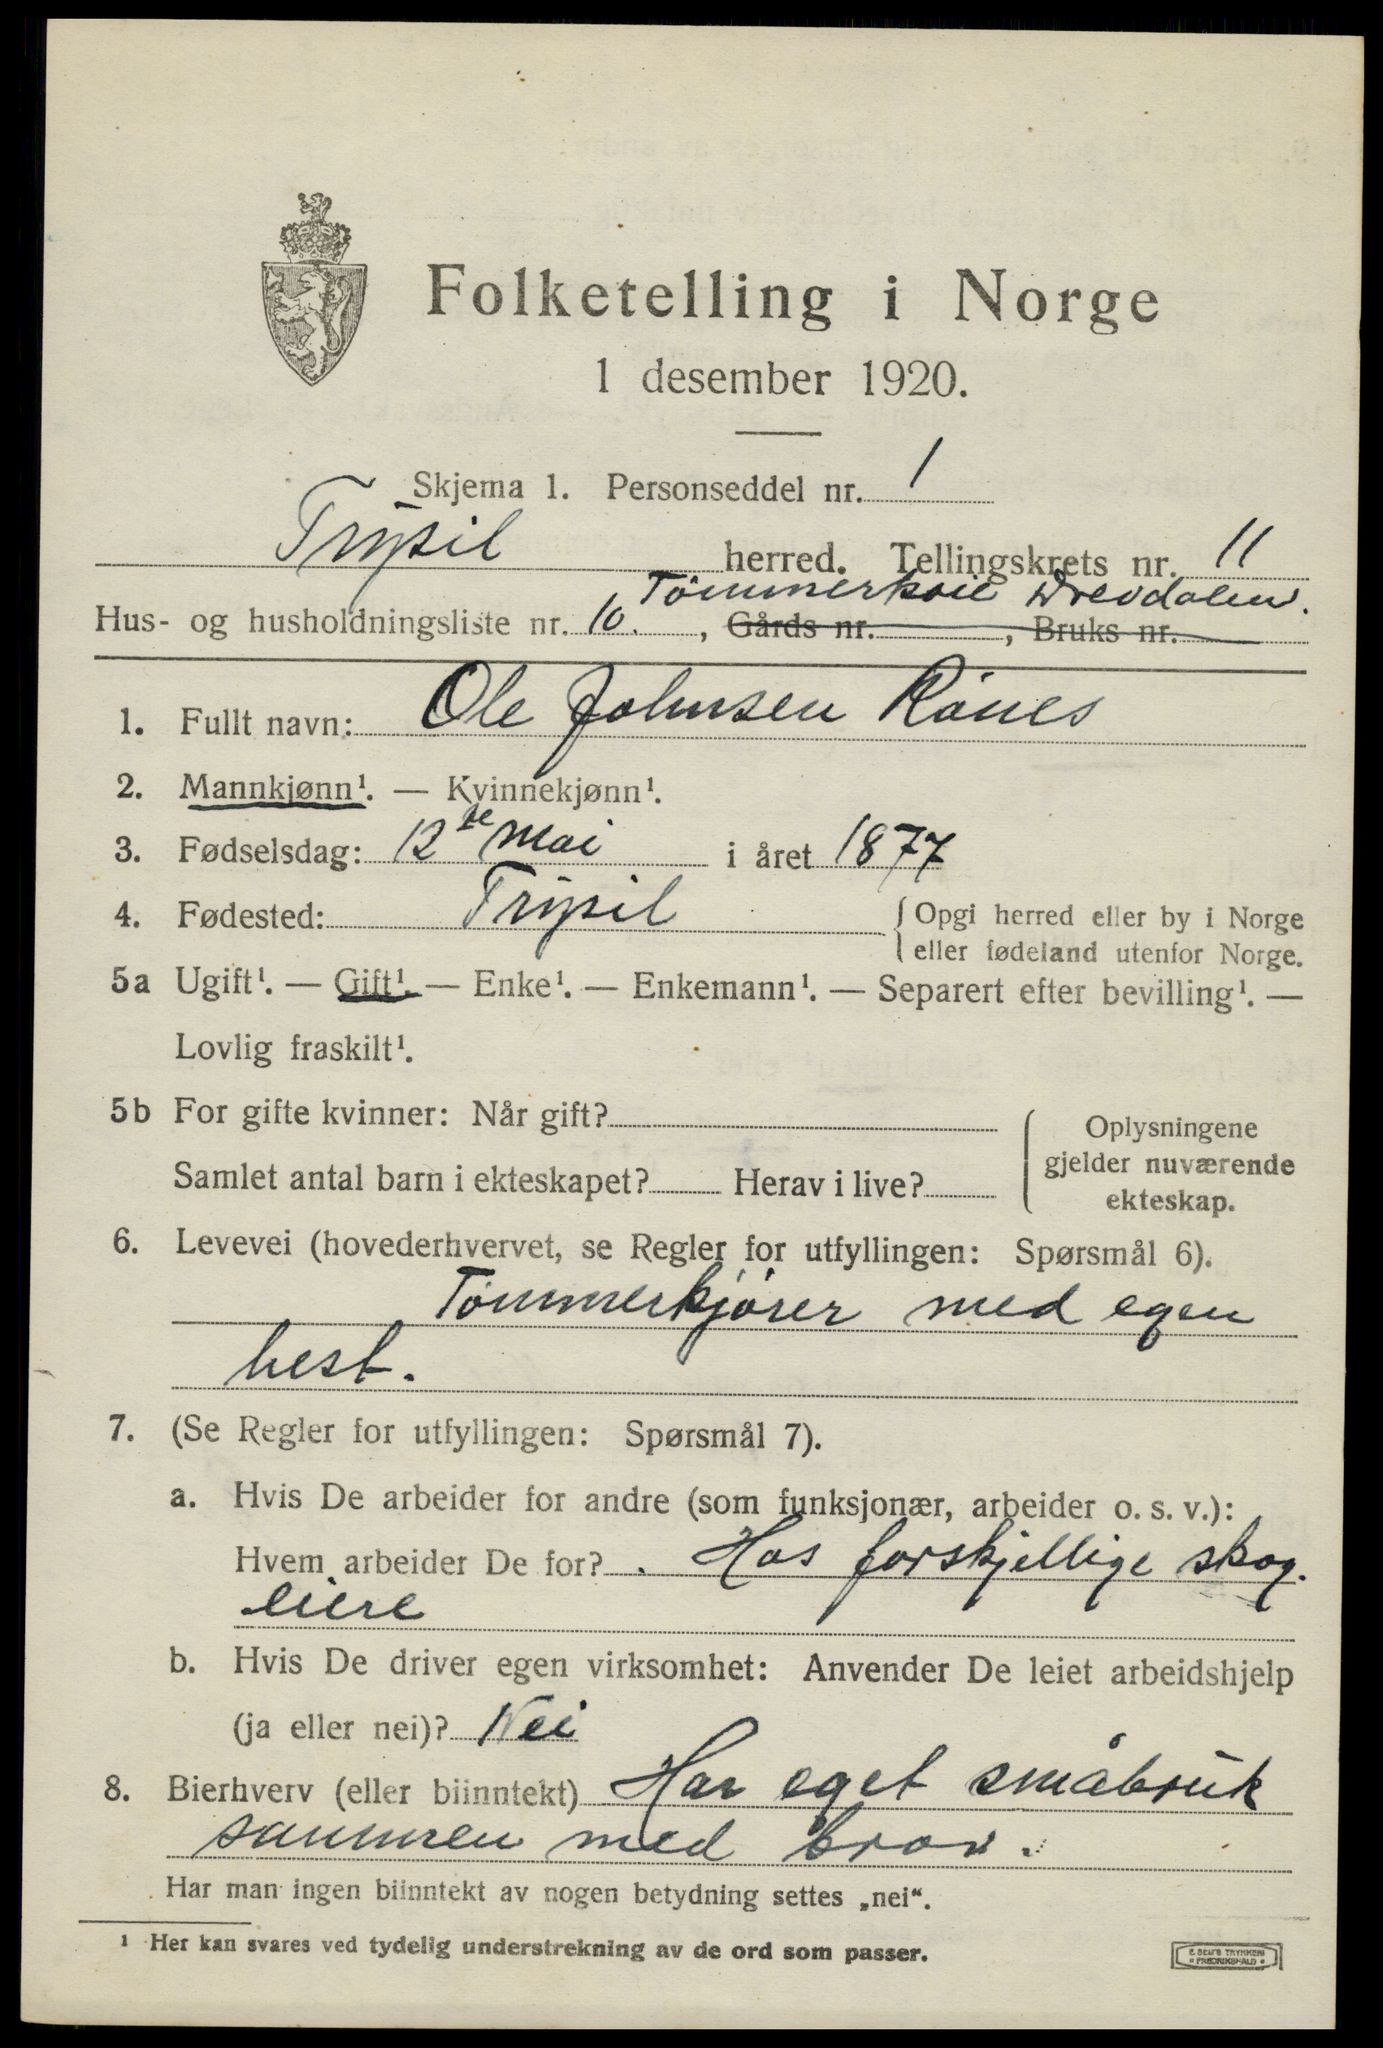 Folketelling i Norge
1 desember 1920.
Skjema 1. Personseddel nr. 1
Trysil herred. Tellingskrets nr. 11
Tømmerkoie Drevdalen.
Hus- og husholdningsliste nr. 10. , Gårds nr. , Bruks nr.
1. Fullt navn: Ole Johnsen Rönes
2. Mannkjønn¹. — Kvinnekjønn¹.
3. Fødselsdag: 12 te mai i året 1877
4. Fødested: Trysil { Opgi herred eller by i Norge
eller fødeland utenfor Norge.
5a Ugift¹. — Gift¹. — Enke¹. — Enkemann¹. — Separert efter bevilling¹. —
Lovlig fraskilt¹.
5b For gifte kvinner: Når gift? { Oplysningene
gjelder nuværende
Samlet antal barn i ekteskapet? Herav i live?
ekteskap.
6. Levevei (hovederhvervet, se Regler for utfyllingen: Spørsmål 6).
Tømmerkjører med egen
hest.
7. (Se Regler for utfyllingen: Spørsmål 7).
a. Hvis De arbeider for andre (som funksjonær, arbeider o. s. v.):
Hvem arbeider De for? . Hos forskjellige skog.
eiere
b. Hvis De driver egen virksomhet: Anvender De leiet arbeidshjelp
(ja eller nei)? Nei
8. Bierhverv (eller biinntekt) Har eget småbruk
sammen med bror.
Har man ingen biinntekt av nogen betydning settes „nei“.
¹ Her kan svares ved tydelig understrekning av de ord som passer.
E. SEM'S TRYKKERI
• FREDRIKSHALD •